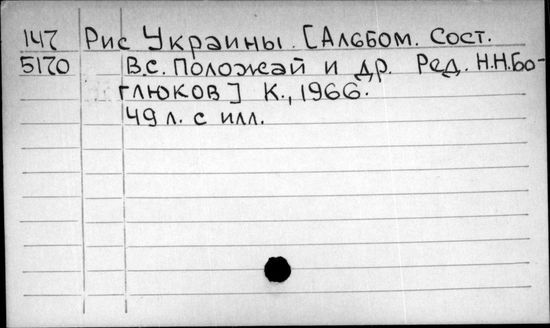 147 Рис Украины. [Альбом. Сост.
5170 В.С. Положай и др. Ред. Н.Н.Бо-
глюков] К., 1966.
49 л. с илл.